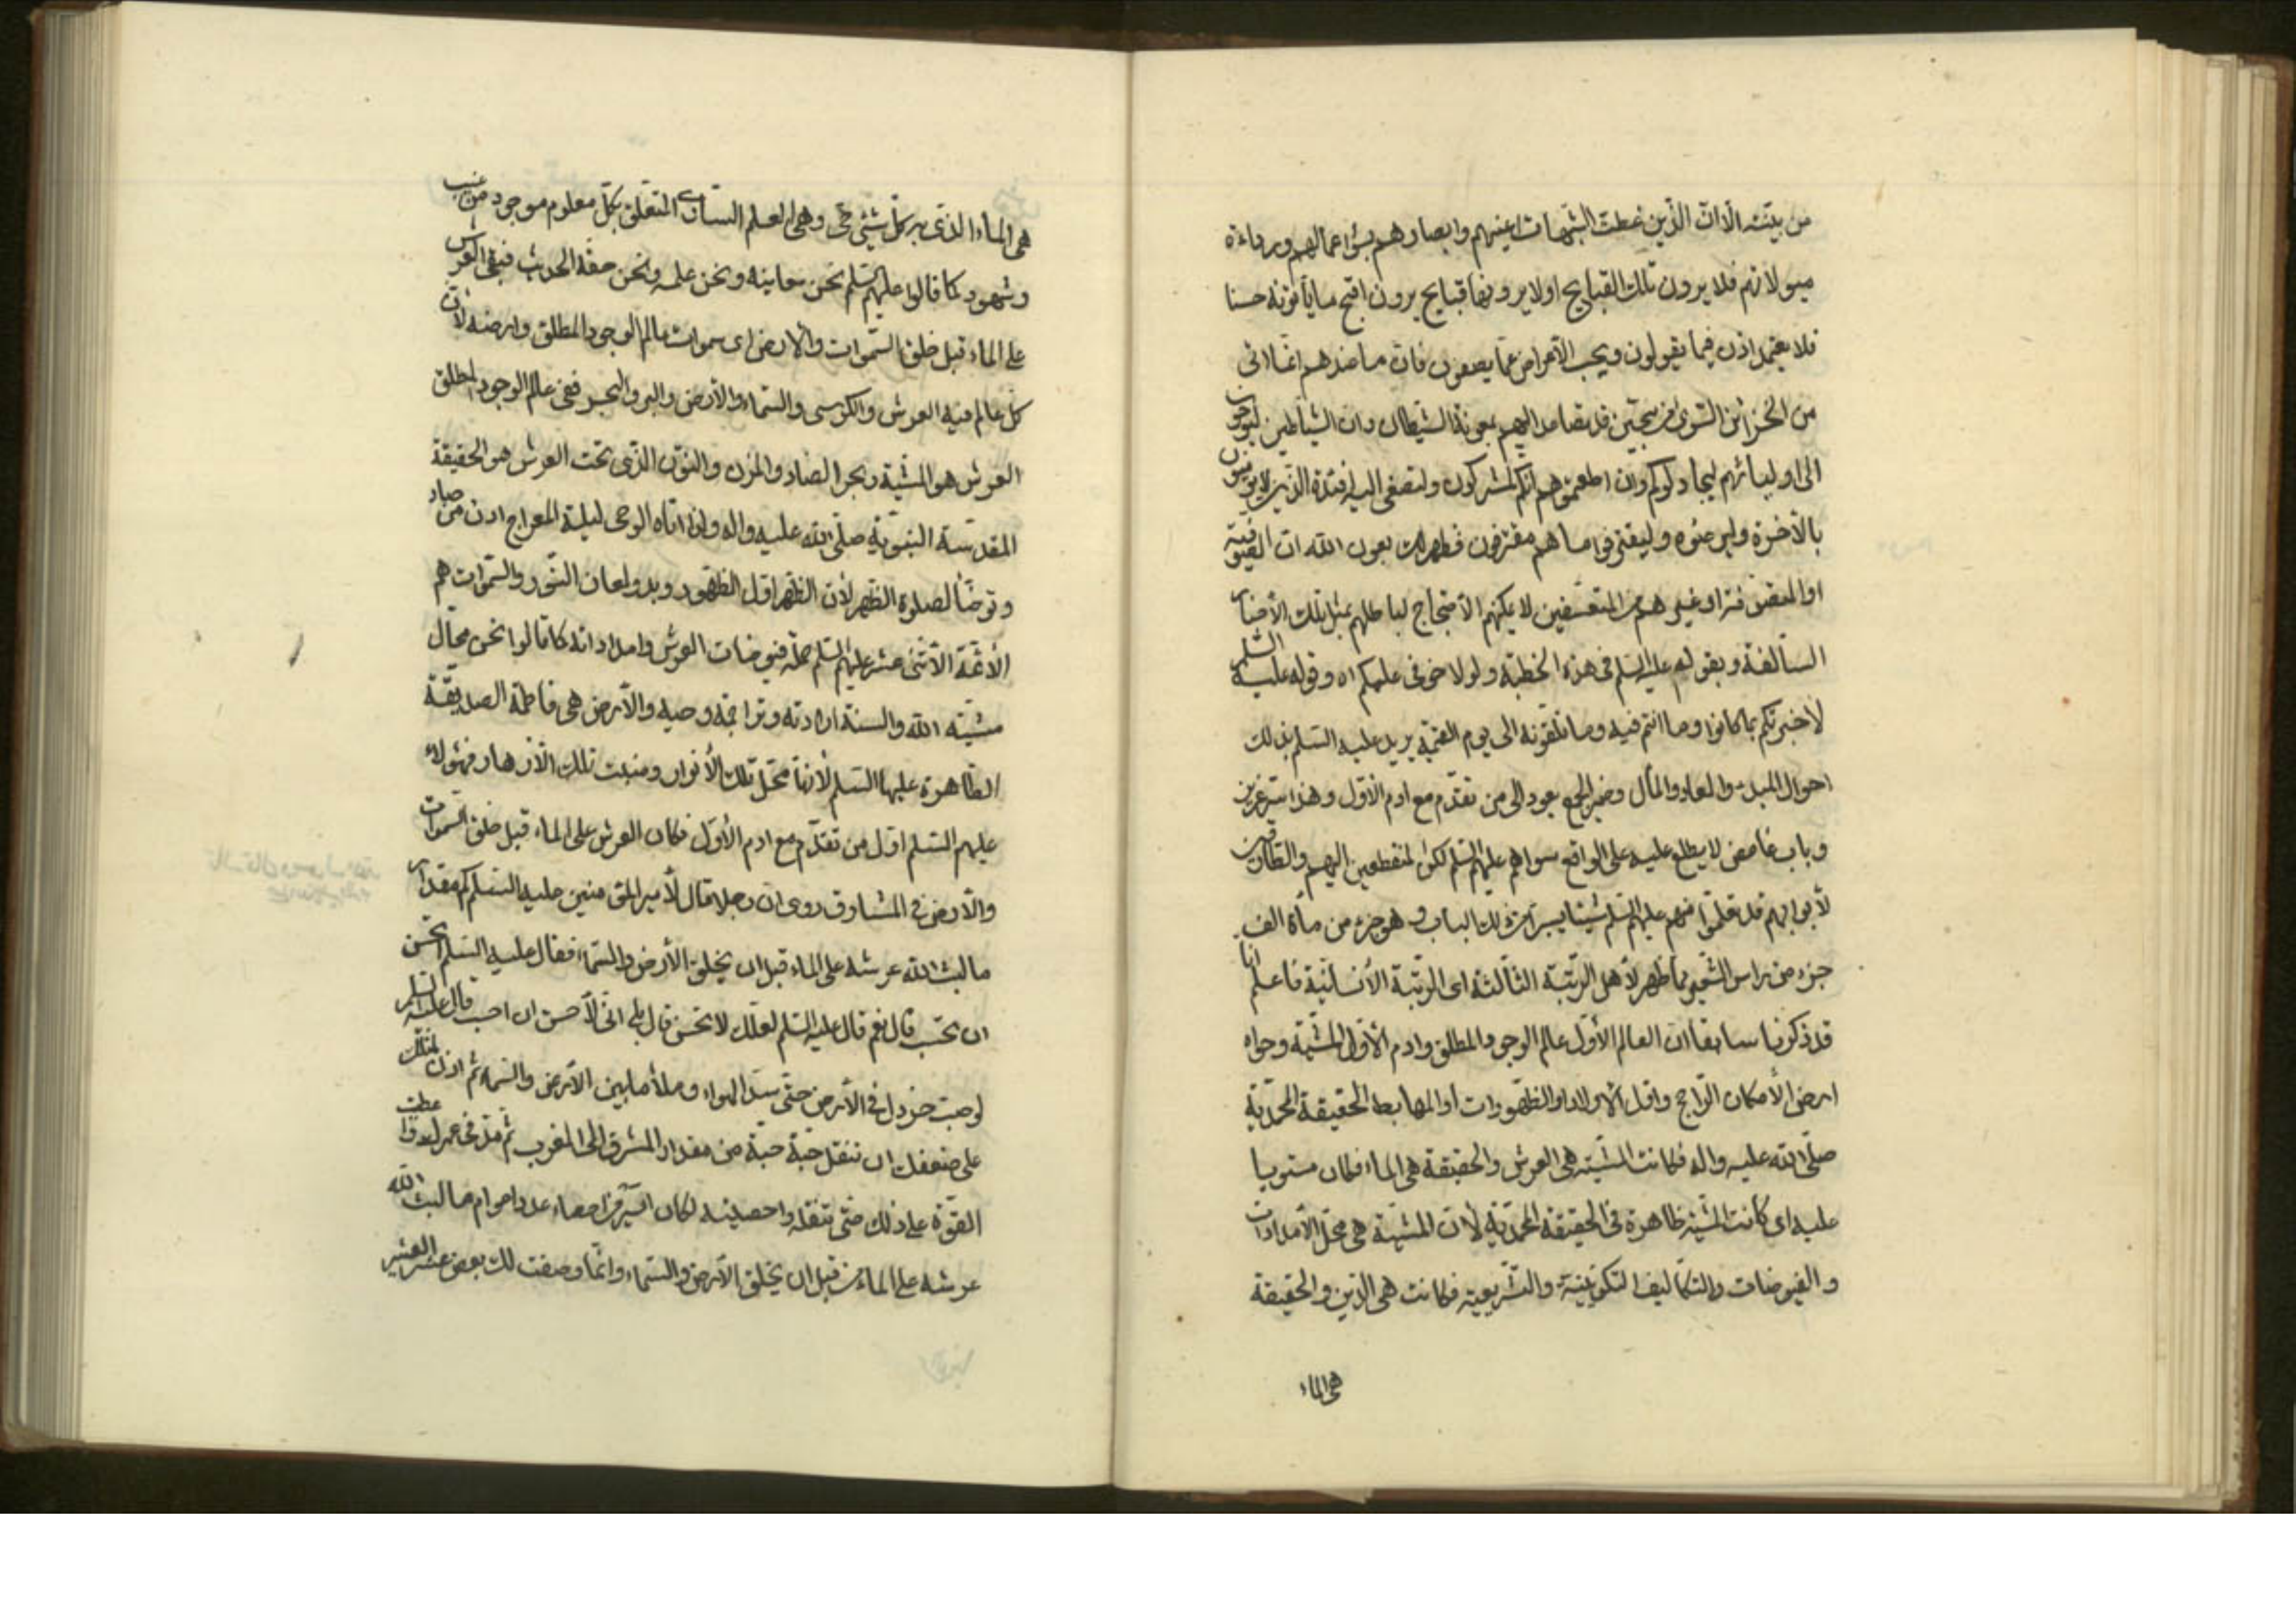 من بيّنته الّا انّ الّذين غطت الشبهات اعينهم وابصارهم بسؤ اعمالهم ورداءة
ميولاتهم فلا يرون تلك القبايح اولا يرونها قبايح يرون اقبح ما يأتونه حسنا
فلا يعتمل اذن فيما يقولون ويجب الأعراض عمّا يصفون فان ما عندهم انما اتى
من الخزائن السّوئ من سجين قد تصاعد اليهم بمعونة الشيطان وان الشياطين ليوحون
الى اوليائهم ليجادلوكم وان اطعتموهم انكم لمشركون ولتصغى اليه افئدة الذين لا يؤمنون
بالآخرة وليرضوه وليقترفوا ما هم مقترفون فظهر لك بعون الله ان الصّوفية
او المتصوّفة او غيرهم من المتعسّفين لا يمكنهم الأحتجاج لباطلهم بمثل تلك الأخبار
السالفة وبقوله عليه السّلم فى هذه الخطبة ولولا خوفى عليكم اه وقوله عليه السّلم
لأخبرتكم بما كانوا وما انتم فيه وما تلقونه الى يوم القيمة يريد عليه السّلم بذلك
احوال المبدء والمعاد والمآل وضمير الجمع يعود الى من تقدّم مع ادم الأوّل وهذا سرّ عزيز
وباب غامض لا يطلع عليه على الواقع سواهم عليهم السّلم لكن المنقطعين اليهم والطّارقين
لأبوابهم قد تعلّموا منهم عليهم السّلم شيئا يسيرا من ذلك الباب وهو جزء من مأة الف
جزء من راس الشّعير مما ظهر لأهل الرّتبة الثّالثة اى الرّتبة الأنسانيّة فاعلم انا
قد ذكرنا سابقا ان العالم الأوّل عالم الوجود المطلق وادم الأوّل المشيّة وحواه
ارض الأمكان الرّاجح واوّل الأولاد او الظّهورات او المهابط الحقيقة المحمّديّة
صلّى الله عليه واله فكانت المشيّة هى العرش والحقيقة هى الماء فكان مستويا
عليه اى كانت المشيّة ظاهرة فى الحقيقة المحمّديّة لأنّ المشيّة هى محلّ الأمدادات
والفيوضات والتكاليف التكوينيّة والتّشريعيّة فكانت هى الدّين والحقيقة
هى الماء
هى الماء الذى به كلّ شيئ حىّ وهى العلم السارى المتعلق بكلّ معلوم موجود من غيب
وشهود كما قالوا عليهم السّلم نحن معانيه ونحن علمه ونحن حقّه الحديث فبقى العرش
على الماء قبل خلق السّموات والأرض اى سموات عالم الوجود المطلق وارضه لأنّ
كلّ عالم فيه العرش والكرسى والسّماء والأرض والبر والبحر ففى عالم الوجود المطلق
العرش هو المشيّة وبحر الصاد والمزن والنون الذى تحت العرش هو الحقيقة
المقدّسة النبويّة صلّى الله عليه واله ولذا اتاه الوحى ليلة المعراج ادن من صاد
وتوضّأ لصلوة الظهر لأن الظهر اوّل الظهور وبدو لمعان النّور والسّموات هم
الأئمّة الأثنى عشر عليهم السّلم حملة فيوضات العرش وامداداته كما قالوا نحن محالّ
مشيّة الله والسنة ارادته وتراجمة وحيه والأرض هى فاطمة الصديقة
الطّاهرة عليها السّلم لأنها محلّ تلك الأنوار ومنبت تلك الأزهار فهؤلاء
عليهم السّلم اوّل من تقدّم مع ادم الأوّل فكان العرش على الماء قبل خلق السّموات
والأرض فى المشارق روى انّ رجلا قال لأمير المؤمنين عليه السّلم كم مقدار
ما لبث الله عرشه على الماء قبل ان يخلق الأرض والسّماء فقال عليه السّلم اتحسن
ان تحسب قال نعم قال عليه السّلم لعلّك لا تحسن قال بلى انى لأحسن ان احسب قال عليه السّلم
لو صبّ خردل فى الأرض حتّى سدّ الهواء وملأ ما بين الأرض والسّماء ثم اذن لمثلك
على ضعفك ان تنقل حبّة حبّة من مقدار المشرق الى المغرب ثمّ مدّ فى عمرك واعطيت
القوّة على ذلك حتّى تنقله واحصيته لكان ايسر من احصاء عدد اعوام ما لبث الله
عرشه على الماء من قبل ان يخلق الأرض والسّماء وانما وصفت لك بعض عشر العشير